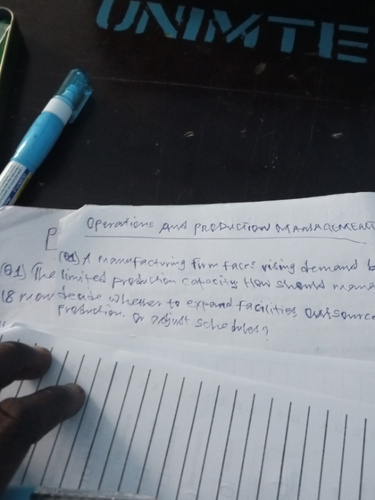 UNIMTE
OPERATIONS AND PRODUCTION MANAGEMENT
P
(Q1) A manufacturing firm faces rising demand b
(Q1) The limited production capacity How should mana
18 mon decide whether to expand facilities outsource
Production. or adjust schedules?